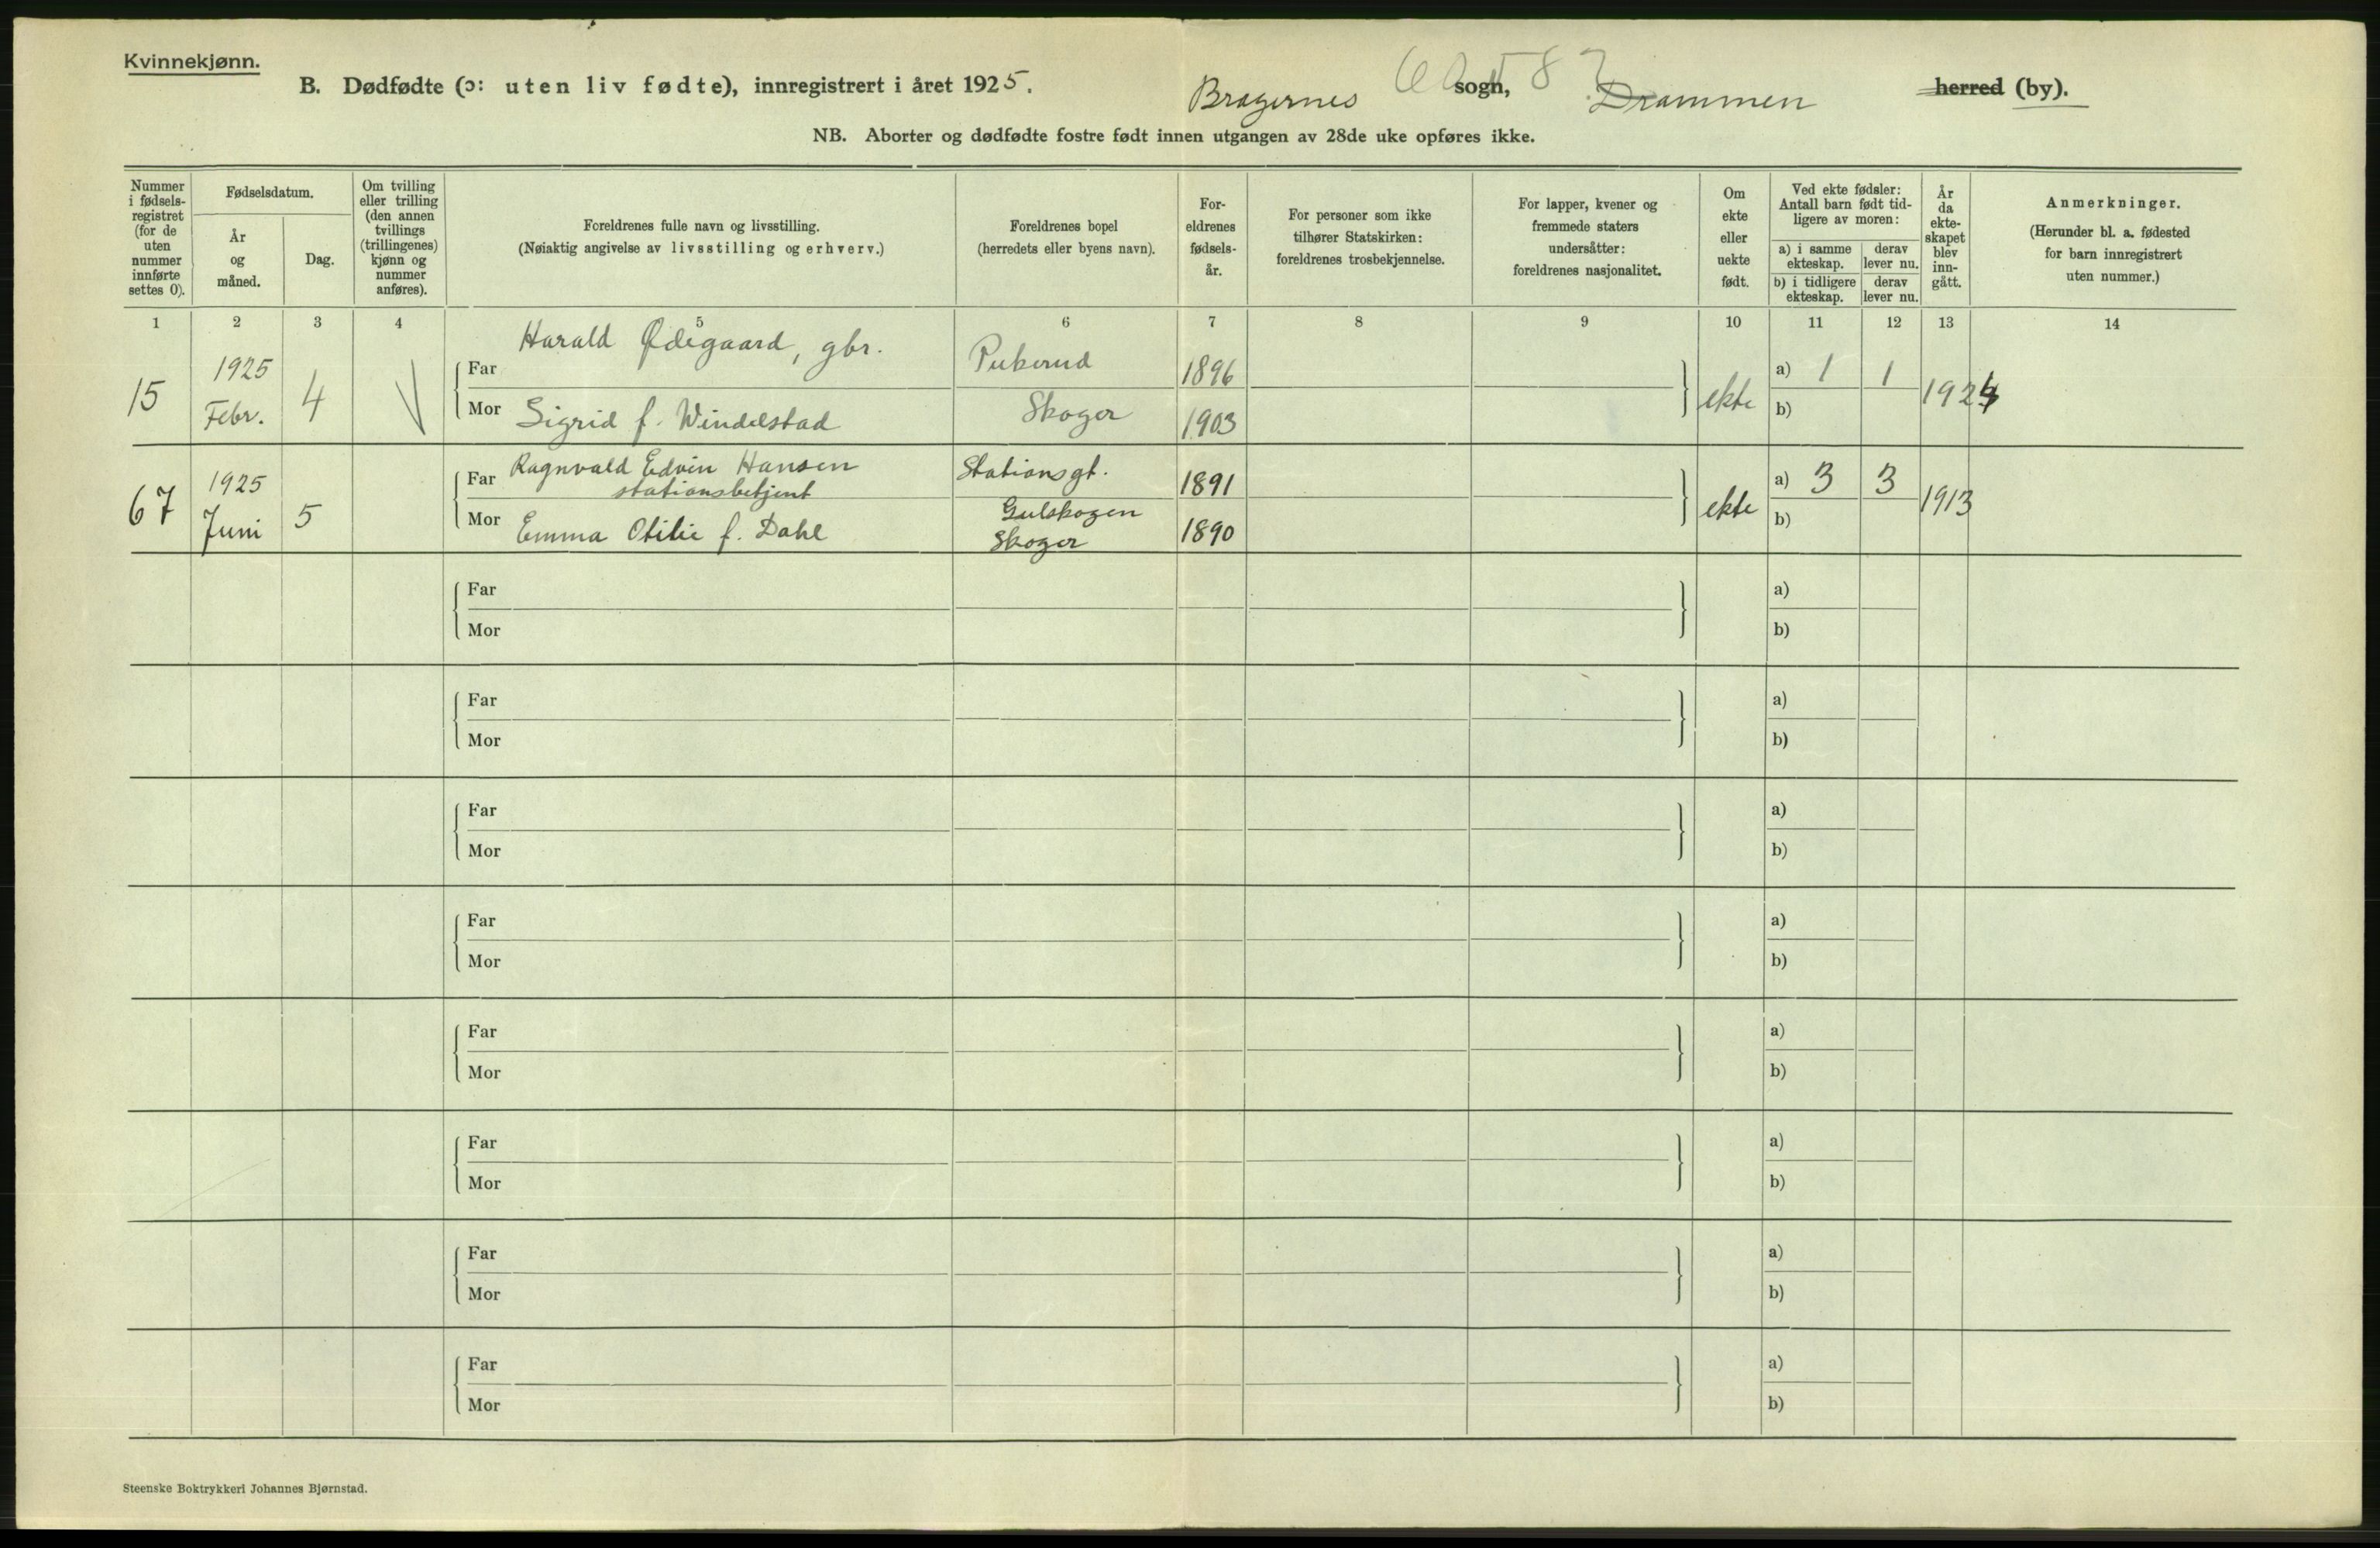 Kvinnekjønn.
B. Dødfødte (ɔ: uten liv fødte), innregistrert i året 1925.
Bragernes sogn, Drammen herred (by).
NB. Aborter og dødfødte fostre født innen utgangen av 28de uke opføres ikke.
Nummer i fødsels-registret (for de uten nummer innførte settes 0).
Fødselsdatum.
År og måned.
Dag.
Om tvilling eller trilling (den annen tvillings (trillingenes) kjønn og nummer anføres).
Foreldrenes fulle navn og livsstilling.
(Nøiaktig angivelse av livsstilling og erhverv.)
Foreldrenes bopel
(herredets eller byens navn).
For-eldrenes fødsels-år.
For personer som ikke tilhører Statskirken: foreldrenes trosbekjennelse.
For lapper, kvener og fremmede staters undersåtter: foreldrenes nasjonalitet.
Om ekte eller uekte født.
Ved ekte fødsler: Antall barn født tid-ligere av moren:
a) i samme ekteskap.
derav lever nu.
b) i tidligere ekteskap.
derav lever nu.
År da ekte-skapet blev inn-gått.
Anmerkninger.
(Herunder bl. a. fødested for barn innregistrert uten nummer.)
1 2 3 4 5 6 7 8 9 10 11 12 13 14
15 1925 Febr. 4
Far Harald Ødegaard, gbr. Pukerud 1896
Mor Sigrid f. Windelstad Skoger 1903
ekte a) 1 1 1924
b)
67 1925 Juni 5
Far Ragnvald Edvin Hansen Stationsgt. 1891
stationsbetjent
Mor Emma Otilie f. Dahl Gulskogen 1890
Skoger
ekte a) 3 3 1913
b)
Far a)
Mor b)
Far a)
Mor b)
Far a)
Mor b)
Far a)
Mor b)
Far a)
Mor b)
Far a)
Mor b)
Far a)
Mor b)
Far a)
Mor b)
Steenske Boktrykkeri Johannes Bjørnstad.